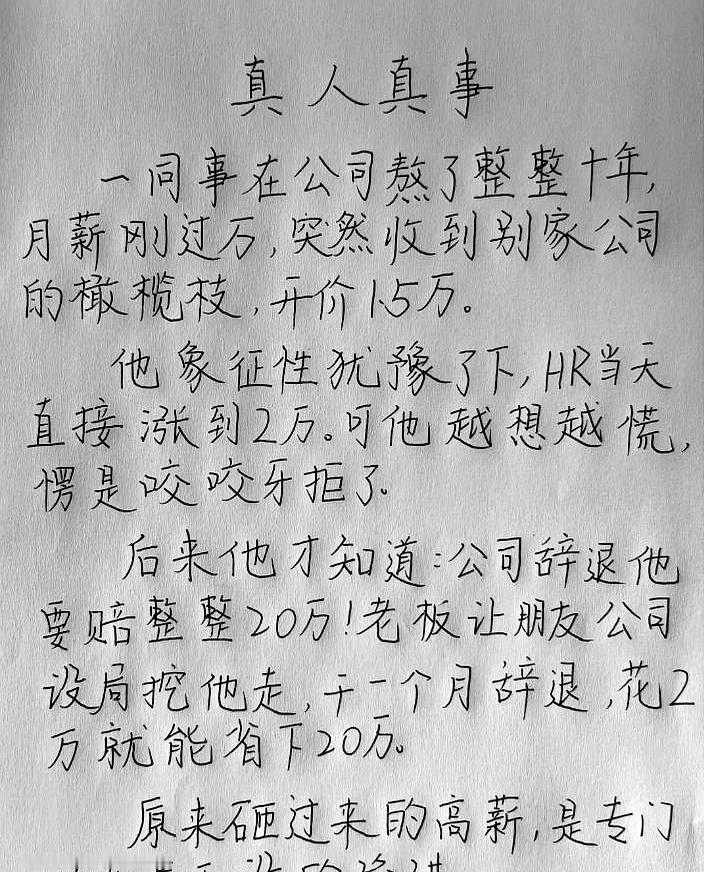 真人真事
一同事在公司熬了整整十年,
月薪刚过万,突然收到别家公司
的橄榄枝,开价1.5万。
他象征性犹豫了下,HR当天
直接涨到2万。可他越想越慌,
愣是咬咬牙拒了。
后来他才知道:公司辞退他
要赔整整20万!老板让朋友公司
设局挖他走,干一个月辞退,花2
万就能省下20万。
原来砸过来的高薪,是专门